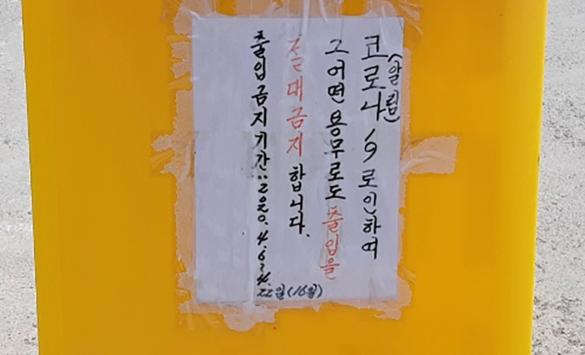 (알림)
코로나19로인하여
그어떤용무로도 출입을
절대금지합니다.
출입금지기간: 2020. 4. 6~4.
22일(16일)